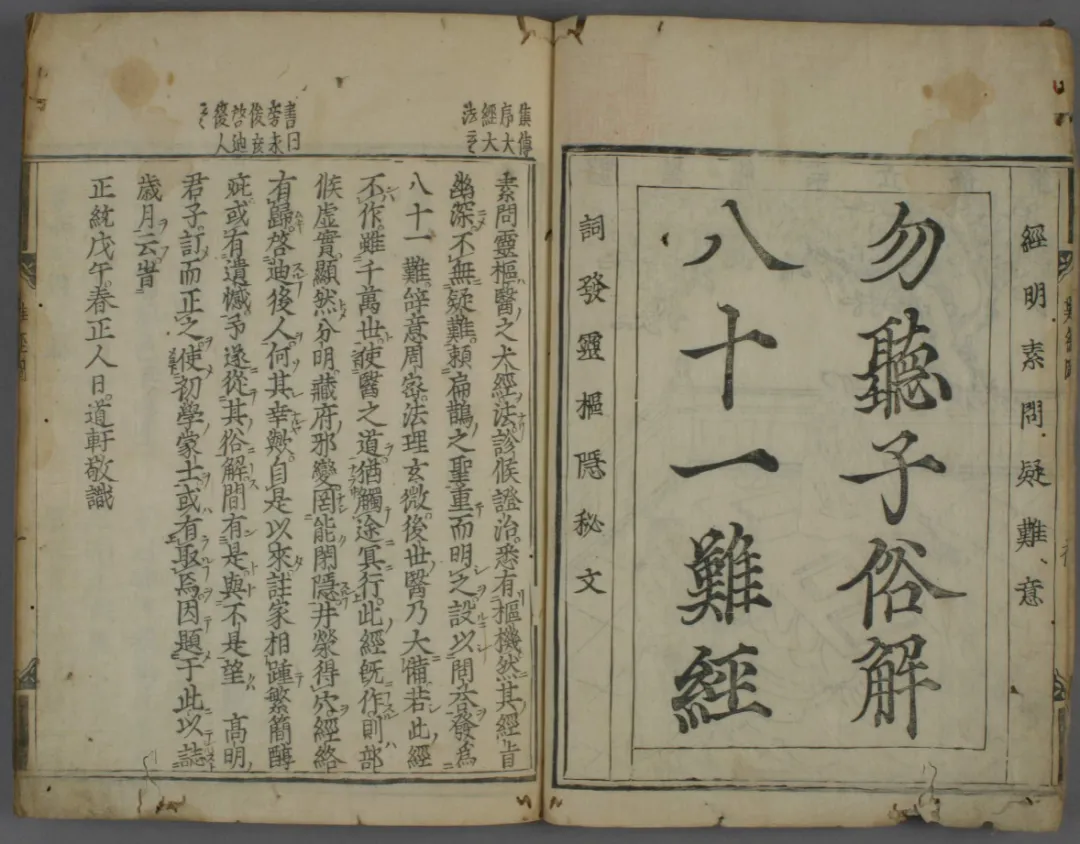 經明素問疑難意
勿聽子俗解
八十一難經
詞發靈樞隱秘文
素問靈樞醫之大經法診候證治悉有樞機然其經旨
幽深不無疑難賴扁鵲之聖重而明之設以問荅發爲
八十一難辝意周密法理玄微後世醫乃大備若此經
不作雖千萬世使醫之道猶觸途冥行此經旣作則部
候虛實顯然分明藏府邪變罔能閉隱井滎得穴經絡
有歸啓迪後人何其幸歟自是以來註家相踵繁簡醇
疵或有遺憾予遂從其俗解間有是與不是望 高明
君子訂而正之使初學蒙士或有取焉因題于此以誌
歲月云旹
正統戊午春正人日道軒敬識
序大
經大
書曰
啓迪
後人